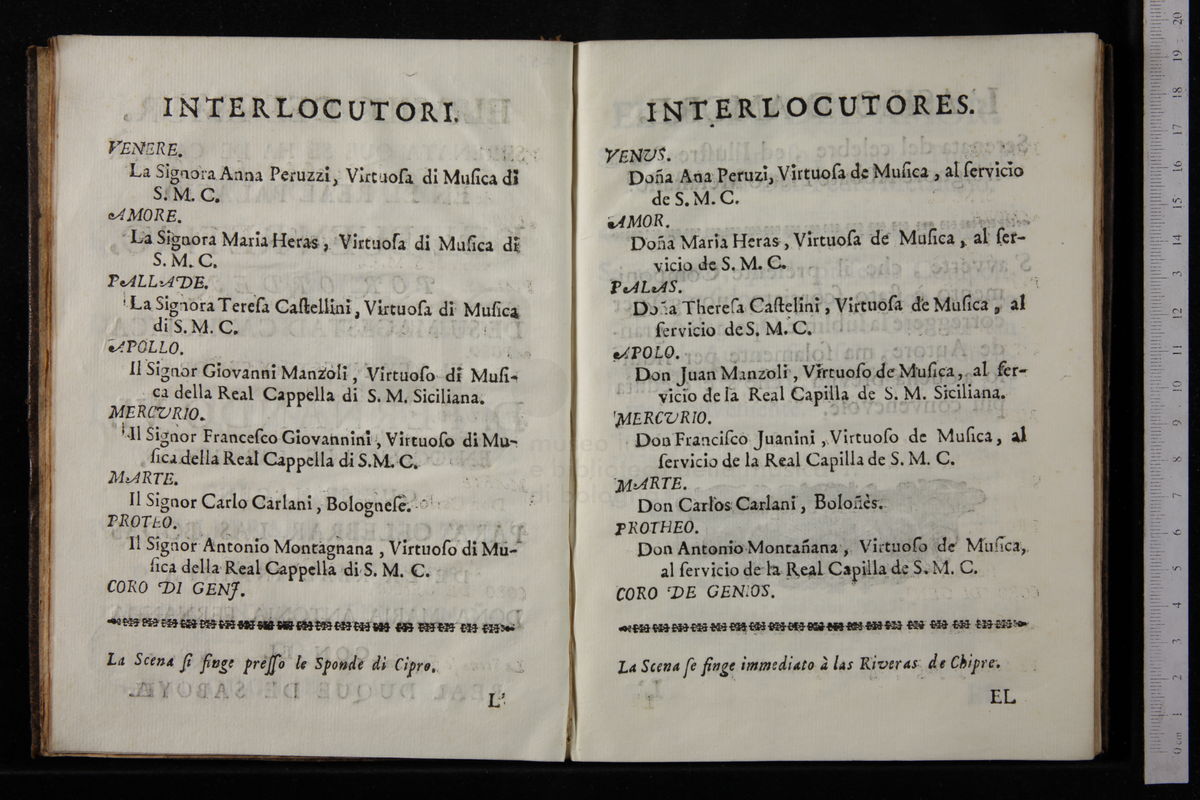 INTERLOCUTORI.
VENERE.
La Signora Anna Peruzzi, Virtuoſa di Muſica di
S. M. C.
AMORE.
La Signora Maria Heras, Virtuoſa di Muſica di
S. M. C.
PALLADE.
La Signora Tereſa Caſtellini, Virtuoſa di Muſica
di S. M. C.
APOLLO.
Il Signor Giovanni Manzoli, Virtuoſo di Muſi-
ca della Real Cappella di S. M. Siciliana.
MERCURIO.
Il Signor Franceſco Giovannini, Virtuoſo di Mu-
ſica della Real Cappella di S.M. C.
MARTE.
Il Signor Carlo Carlani, Bologneſe.
PROTEO.
Il Signor Antonio Montagnana, Virtuoſo di Mu-
ſica della Real Cappella di S. M. C.
CORO DI GENJ.
La Scena ſi finge preſſo le Sponde di Cipro.
L'
INTERLOCUTORES.
VENUS.
Doña Ana Peruzi, Virtuoſa de Muſica, al ſervicio
de S. M. C.
AMOR.
Doña Maria Heras, Virtuoſa de Muſica, al ſer-
vicio de S. M. C.
PALAS.
Doña Thereſa Caſtelini, Virtuoſa de Muſica, al
ſervicio de S. M. C.
APOLO.
Don Juan Manzoli, Virtuoſo de Muſica, al ſer-
vicio de la Real Capilla de S. M. Siciliana.
MERCURIO.
Don Franciſco Juanini, Virtuoſo de Muſica, al
ſervicio de la Real Capilla de S. M. C.
MARTE.
Don Carlos Carlani, Boloñès.
PROTHEO.
Don Antonio Montañana, Virtuoſo de Muſica,
al ſervicio de la Real Capilla de S. M. C.
CORO DE GENIOS.
La Scena ſe finge immediato à las Riveras de Chipre.
EL